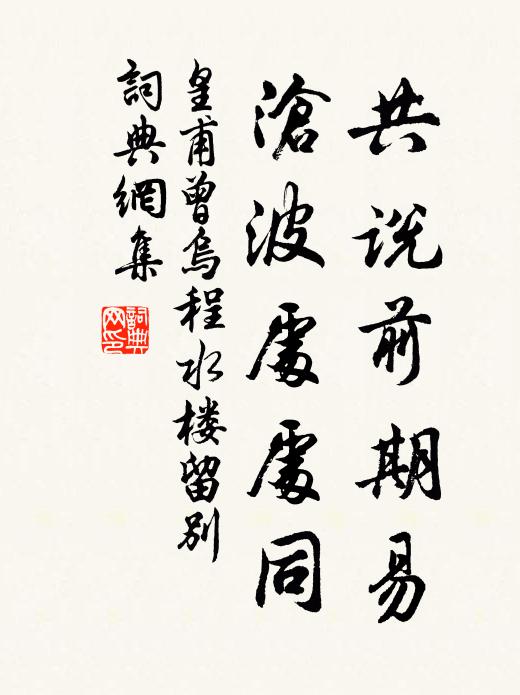 共说前期易
滄波處處同
皇甫曾烏程水楼留别
詞典網集
詞典
网印